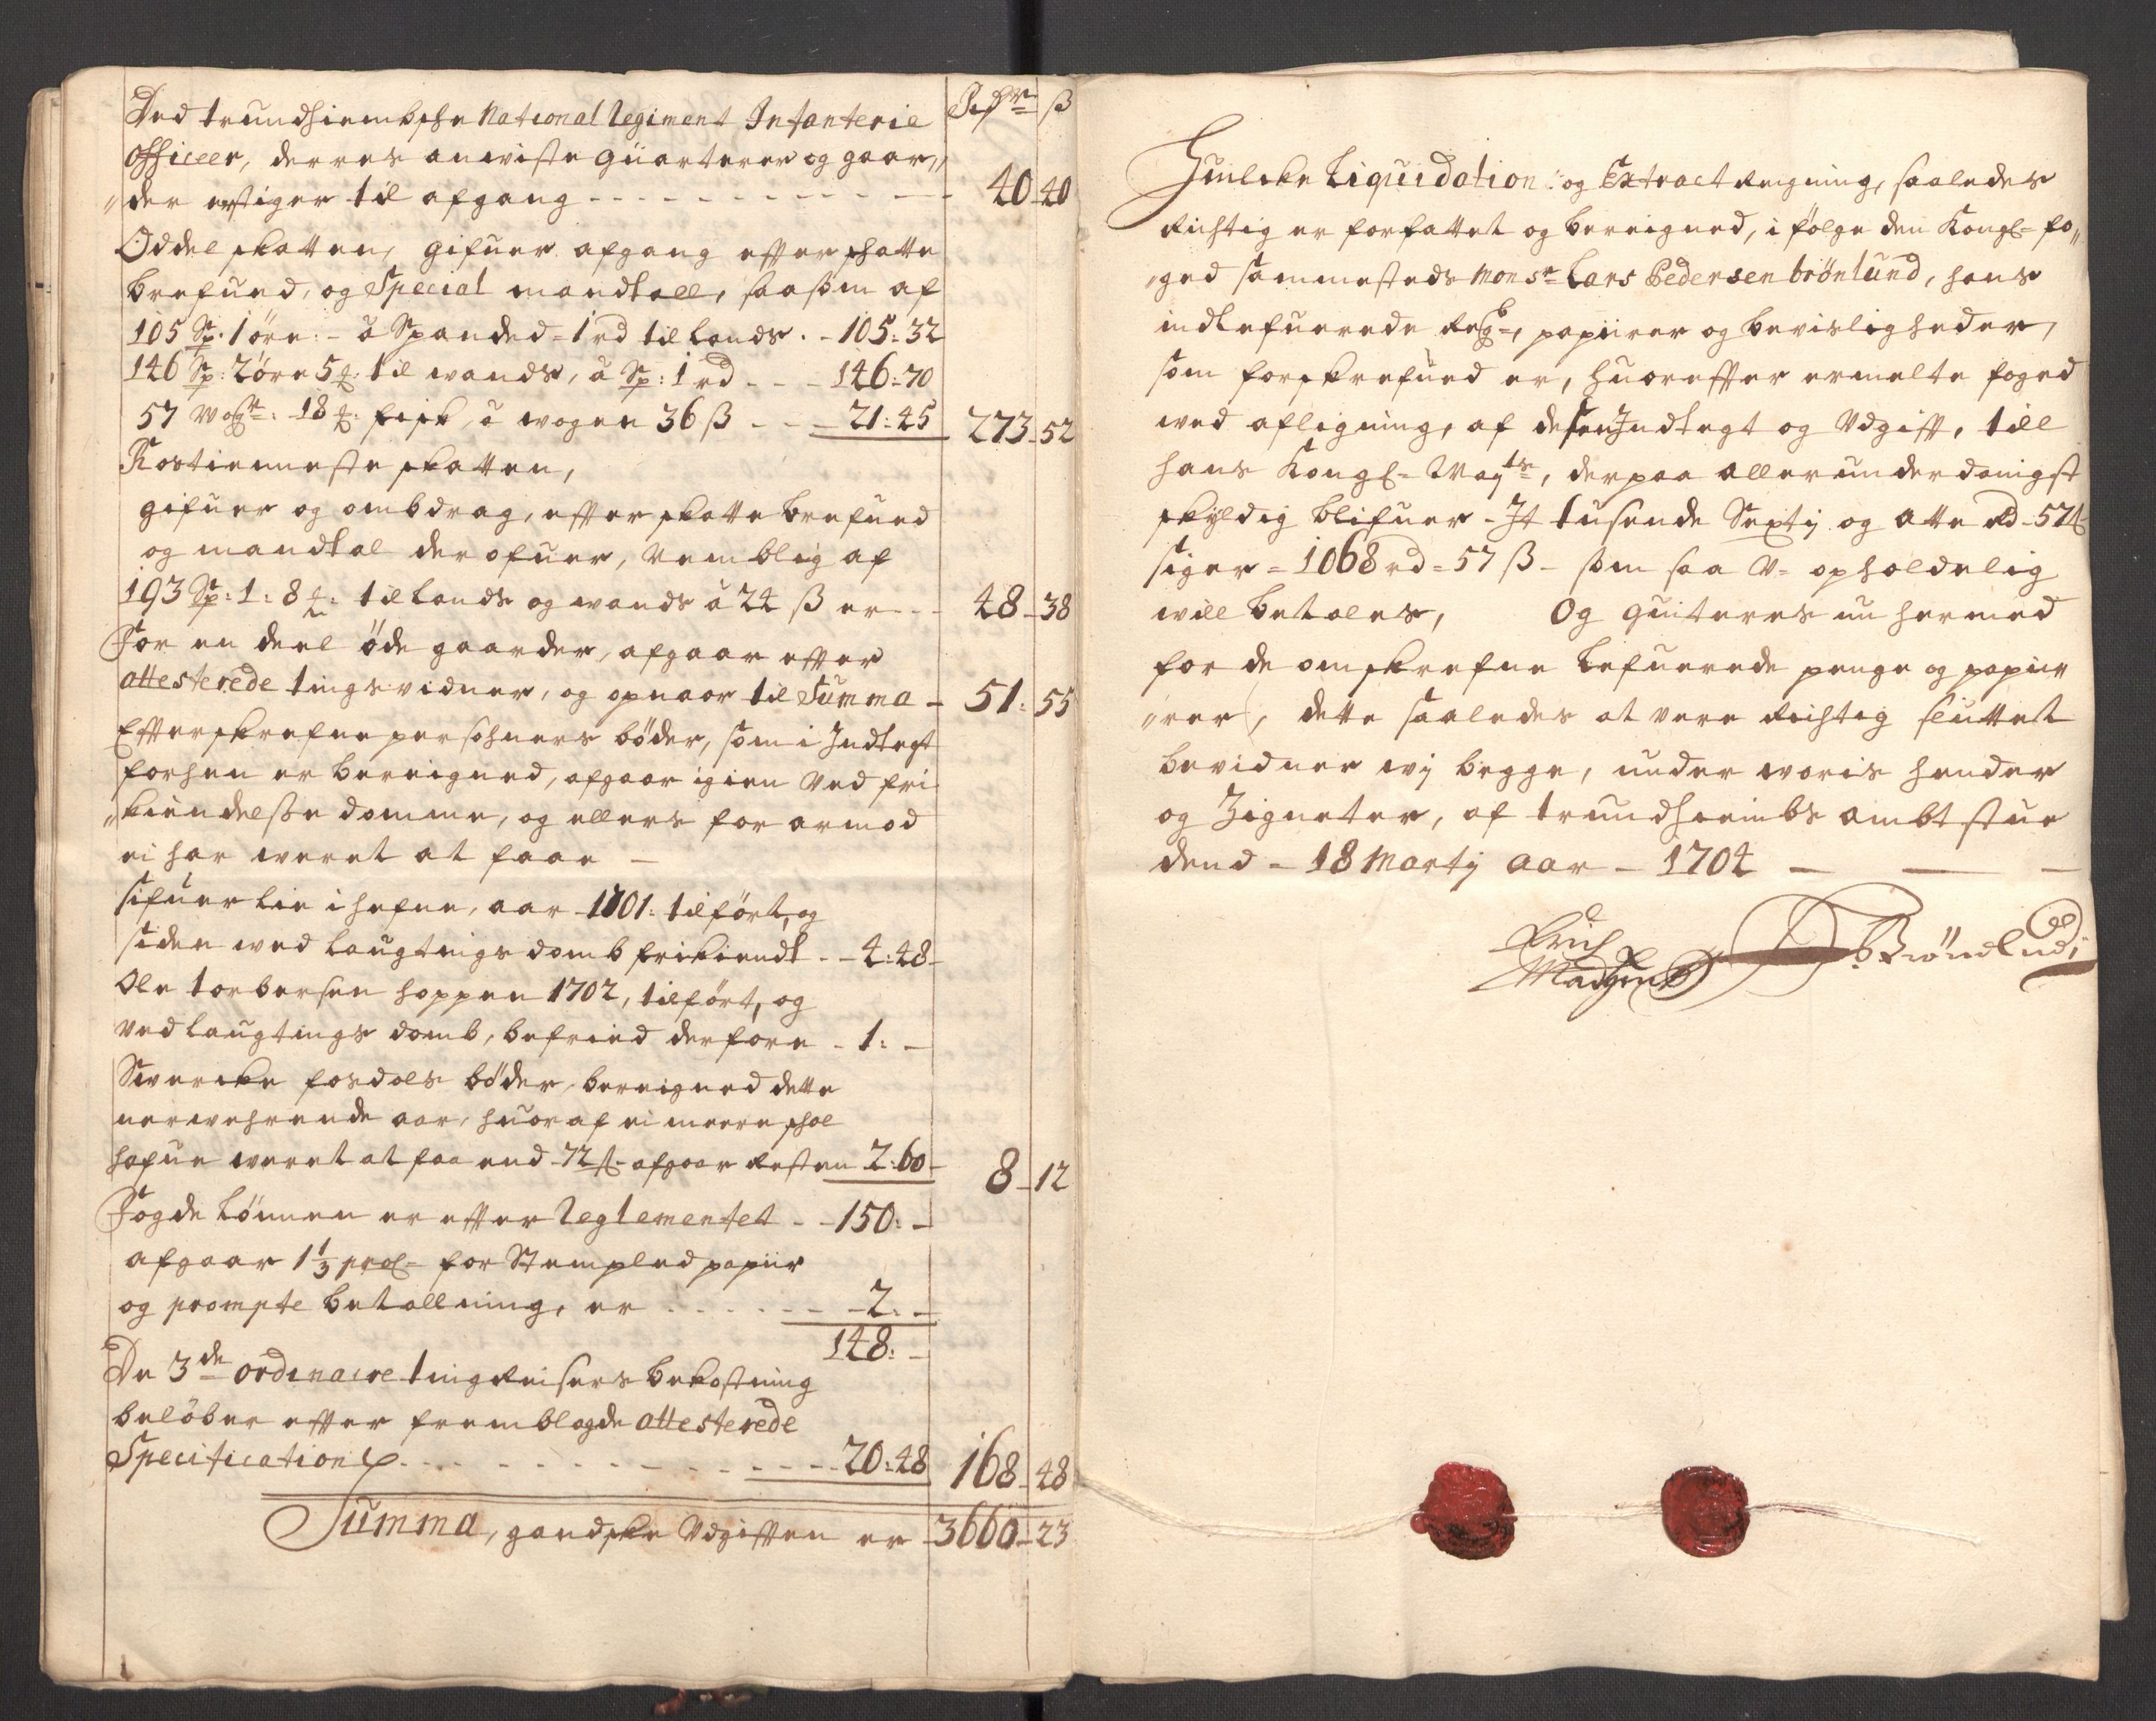 Rixdr ß
Ded trundhiembske National Regiment Infanterie
Officeer, derres anviste Quarterer og gaar„
„der erstiger til afgang - - - 40-40
Oddel skatten, gifuer afgang effter skatte
brefued, og Special mandtall, saasom af
105 Sp. 1 öre: - â Spanded - 1 rd til lands. - 105:32
146 Sp: 2 öre 5 til wands, â Sp: 1 rd - - - 146:70
57 Wog: 18 fisk, â wogen 36 ß - - - 21:45 273-52
Rostienneste skatten,
gifuer og ombdrag, effter skatte brefued
og mandtal derofuer, Nemblig af
193 Sp: 1: 8 til lands og wands â 24 ß er - - 48-38
For en deel öde gaarder, afgaar effter
attesterede tingsvidner, og opnaar til Summa - 51:55
Effterskrefne persohners böder, som i Indtegt
forhen er bereigned, afgaar igien Ved fri
„kiendelsse domme, og ellers for armod
ei har weret at faae -
sifuer Lie i hefne, aar 1701: tilfört, og
siden wed laugtings domb frikiendt. - 4:48-
Ole torbersen hoppen 1702, tilfört, og
Ved laugtings domb, befried derfore - 1: -
Swercke fosdals böder bereigned dette
nerwehrende aar, huoraf ei meere skal
hafue weret at faa end - 72 ß - afgaar Resten 2:60- 8-12
Fogde Lönnen er effter Reglementet - - 150: -
afgaar 1 1/3 proC- for Stempled papiir
og prompte betallning, er - - - 2: -
148: -
De 3de ordinaire ting Reisers bekostning
belöber effter fremblagde attesterede
Specification - - - 20:48 168-48
Summa, gandske Udgifften er - 3660-23
Huilcke Liquidation: og Extract Reigning, saaledes
Richtig er forfattet og bereigned, i fölge den Kongl- fo„
„ged sammesteds Monsr Lars Pedersen brönlund, hans
indlefuerede Regb-, papiirer og bevisligheder,
som forskrefued er, huoreffter ermelte foged
wed afligning, af dessen Indtegt og Udgifft, till
hans Kongl- Mayts, derpaa allerunderdanigst
skyldig blifuer - It tusende Sexty og Atte Rd - 57 ß
siger = 1068 rd = 57 ß - som saa V- opholdelig
will betales, Og quiteres nu hermed
for de omskrefne Lefuerede penge og papii„
„rer, dette saaledes at vere Richtig sluttet
bevidner wy begge, under woris hender
og Zigneter, af trundhiembs ambtstue
dend - 18 Marty Aar - 1704 - - -
Erich
Madsen
LPBröndlund